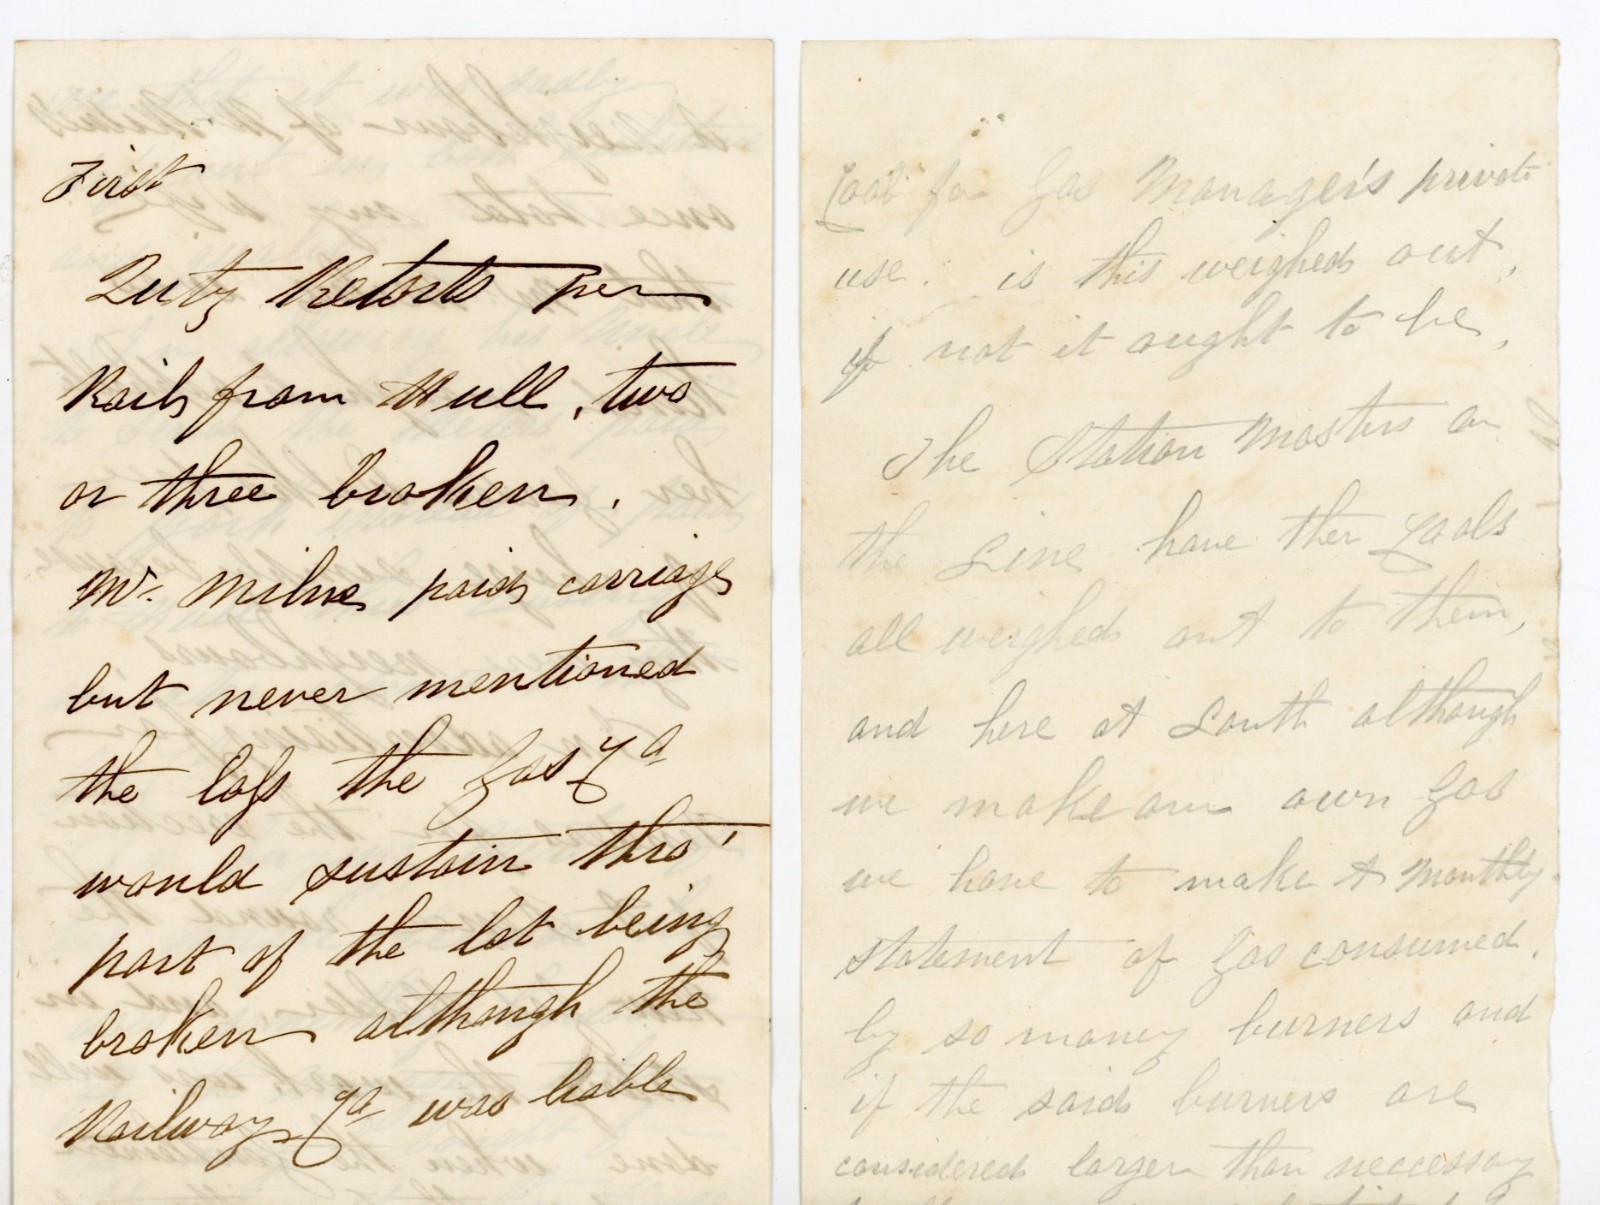 First
Quty Retorts per
Rail from Hull, two
or three broken.
Mr. Milne paid carriage
but never mentioned
the loss the Gas Co
would sustain thro'
part of the lot being
broken although the
Railway Co was liable
Coal for Gas Manager's private
use. is this weighed out,
if not it ought to be,
The Station Masters on
the Line have ther Coals
all weighed out to them,
and here at South although
we make our own Gas
we have to make A Monthly
statement of Gas consumed.
by so many burners and
if the said burners are
considered larger than neccessary